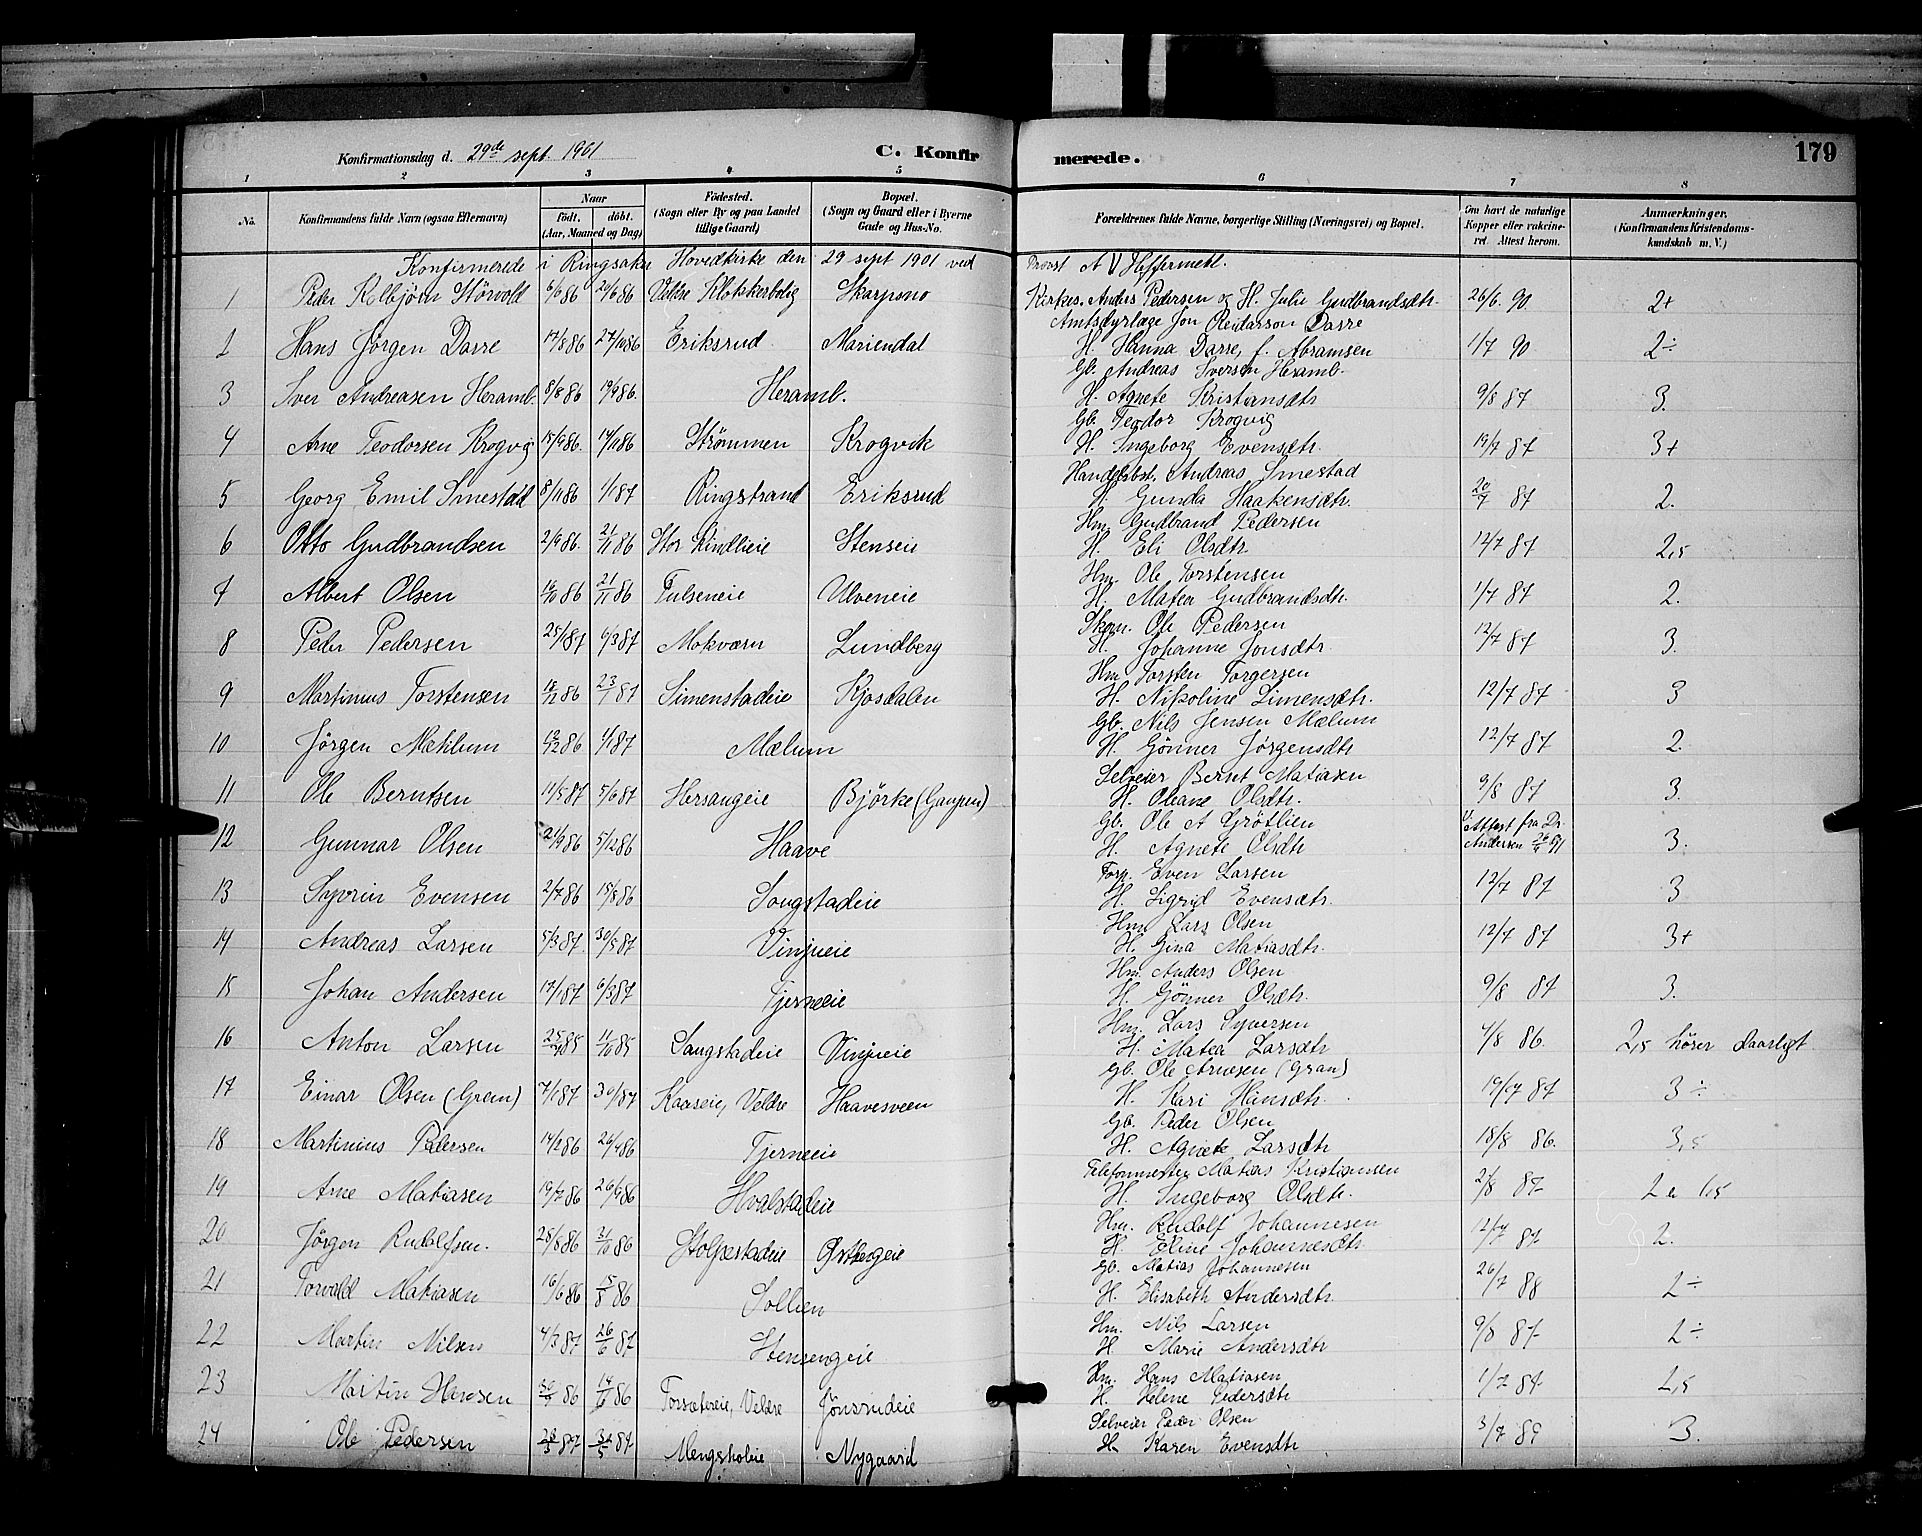 Konfirmationsdag d. 29de sept. 1901 C. Konfirmerede. 179
1 2 3 4 5 6 7 8
No. Konfirmandens fulde Navn (ogsaa Efternavn) Naar født. døbt. (Aar, Maaned og Dag) Fødested. (Sogn eller By og paa Landet tillige Gaard) Bopæl. (Sogn og Gaard eller i Byerne Gade og Hus-No. Forældrenes fulde Navne, borgerlige Stilling (Næringsvei) og Bopæl. Om havt de naturlige Kopper eller vakcineret. Attest herom. Anmærkninger. (Konfirmandens Kristendomskundskab m. V.)
Konfirmerede i Ringsaker Hovedkirke den 29 sept 1901 ved Provst A V Heffermehl.
1 Peder Kolbjørn Størvold 6/6 86 20/6 86 Veldre Klokkerbolig Skarpsno Kirkes. Anders Pedersen og H. Julie Gudbrandsdtr. 26/6 90 2+
Amtsdyrlæge Jon Reidarson Darre
2 Hans Jørgen Darre 17/8 86 27/10 86 Eriksrud Mariendal H. Hanna Darre, f. Abramsen 1/7 90 2÷
Gb. Andreas Iversen Heramb.
3 Iver Andreasen Heramb. 8/8 86 19/9 86. Heramb. H. Agnete Kristiansdtr 9/8 87 3.
Gb. Teodor Krogvig
4 Arne Teodorsen Krogvig 15/9 86. 14/11 86 Strømmen Krogvik H. Ingeborg Evensdtr. 19/7 87 3+
Handelsbst. Andreas Smestad
5 Georg Emil Smestad 8/11 86 1/1 87 Ringstrand Eriksrud H. Gunda Haakensdtr. 20/7 87 2.
Hm. Gudbrand Pedersen
6 Otto Gudbrandsen 2/9 86. 21/11 86 Stor Kindlieie Stenseie H. Eli Olsdtr 12/7 87 2,5
Hm. Ole Torstensen
7 Albert Olsen 16/10 86 21/11 86 Tulseneie Ulveneie H. Matea Gudbrandsdtr. 1/7 87 2.
Skom. Ole Pedersen
8 Peder Pedersen 25/1 87 6/3 87 Mokværn Lundberg H. Johanne Jonsdtr. 12/7 87 3.
Hm Torsten Torgersen
9 Martinus Torstensen 18/12 86 23/1 87 Simenstadeie Kjosdalen H. Nikoline Simensdtr. 12/7 87 3
Gb. Nils Jensen Mælum
10 Jørgen Mæhlum 12/12 86 1/1 87 Mælum H. Gønner Jørgensdtr 12/7 87 2.
Selveier Bernt Matiasen
11 Ole Berntsen 11/5 87 5/6 87 Hersaugeie Bjørke (Gaupen) H. Oleane Olsdtr. 9/8 87 3.
Gb. Ole A Grøtlien
12 Gunnar Olsen 21/9 86 5/12 86 Haave H. Agnete Olsdtr V. Attest fra Dr. Andersen 26/4 91 3.
Torp. Even Larsen
13 Syvrin Evensen 2/7 86 15/8 86 Sougstadeie H. Sigrid Evensdtr. 12/7 87 3
Hm Lars Olsen
14 Andreas Larsen 5/3 87 30/5 87 Vinjueie H. Gina Matiasdtr. 12/7 87 3+
Hm. Anders Olsen
15 Johan Andersen 17/1 87 6/3 87 Tjerneeie H. Gønner Olsdtr. 9/8 87 3.
Hm. Lars Syversen
16 Anton Larsen 25/7 85 11/10 85 Saugstadeie Vinjueie H. Matea Larsdtr 4/8 86 2,5 hører daarligt
Gb. Ole Arnesen (Gran)
17 Einar Olsen (Gran) 7/1 87 30/1 87 Kaaseie, Veldre Haavesveen H. Kari Hansdtr. 19/7 87 3÷
Gb. Peder Olsen
18 Martinius Pedersen 14/2 86 26/4 86 Tjerneeie H. Agnete Larsdtr 18/8 86. 3,5
Telefonmester Matias Kristiansen
19 Arne Matiasen 19/7 86 26/9 86 Hvalstadeie H. Ingeborg Olsdtr. 2/8 87 2 a 1,5
Hm. Rudolf Johannesen
20 Jørgen Rudolfsen. 28/8 86 31/10 86 Stolpestadeie Østbergeie H. Eline Johannesdtr. 12/7 87 2.
Gb. Matias Johannesen
21 Torvald Matiasen 16/6 86 15/8 86 Sollien H. Elisabeth Andersdtr. 26/7 88 2÷
Hm. Nils Larsen
22 Martin Nilsen 4/3 87 26/6 87 Stensengeie H Marie Andersdtr 9/8 87 2÷
Hm. Hans Matiasen
23 Martin Hansen 30/9 86 14/11 86 Torsætereie, Veldre Jønsrudeie H. Helene Pedersdtr 1/7 87. 2,5
Selveier Peder Olsen
24 Ole Pedersen 28/3 87 31/5 87 Mengshoieie Nygaard H. Karen Evensdtr 3/7 89 3.